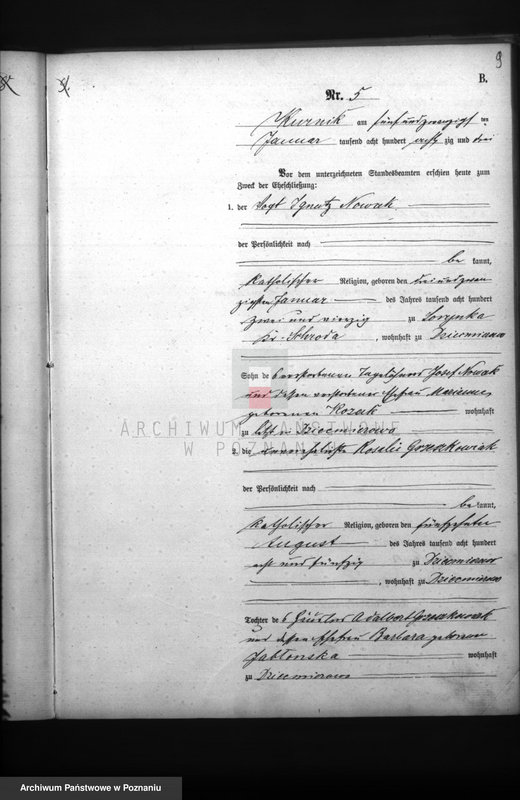 9
B.
Nr. 5
Kurnik am fünfundzwanzigsten
Januar tausend acht hundert achtzig und drei
Vor dem unterzeichneten Standesbeamten erschien heute zum
Zweck der Eheschließung:
1. der Vogt Ignatz Nowak
der Persönlichkeit nach
be kannt,
katholischer Religion, geboren den
zigsten Januar des Jahres tausend acht hundert
zwei und vierzig zu
Kr. Schroda, wohnhaft zu Dziecmirowo
Sohn des verstorbenen Tagelöhners Josef Nowak
und dessen verstorbener Ehefrau Marianna
geborenen Kozak wohnhaft
zu letzt in Dziecmierowo
ARCHIWUM PAŃSTWOWE
W POZNANIU
2. die unverehelichte Rosalie Grzeskowiak
der Persönlichkeit nach
be kannt,
katholischer Religion, geboren den fünfzehnten
August des Jahres tausend acht hundert
acht und fünfzig zu Dziecmierowo
, wohnhaft zu Dziecmierowo
Tochter des Häuslers Adalbert Grzeskowiak
und dessen Ehefrau Barbara geborenen
Jabłonska wohnhaft
zu Dziecmierowo
Archiwum Państwowe w Poznaniu